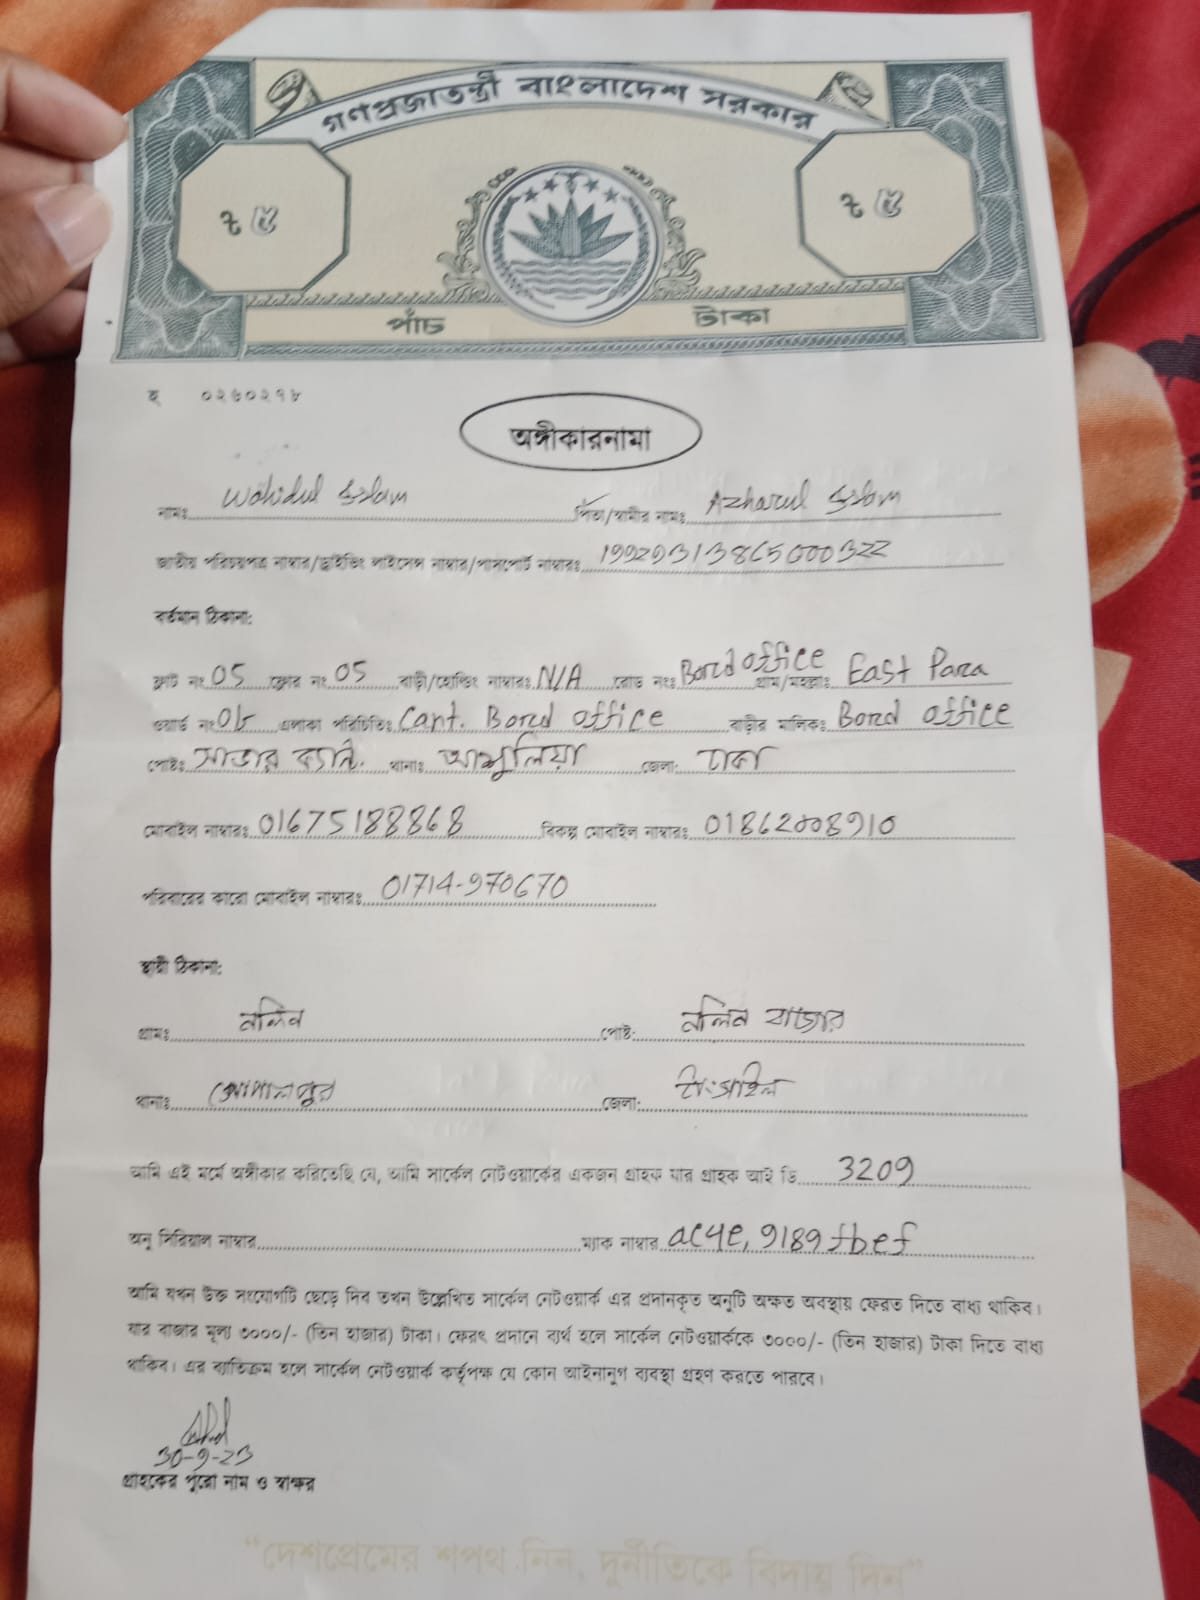 গণপ্রজাতন্ত্রী বাংলাদেশ সরকার
৳ ৫ ৳ ৫
পাঁচ টাকা
হ ০২৬০২৭৮
অঙ্গীকারনামা
নামঃ Wahidul Islam পিতা/স্বামীর নামঃ Azharul Islam
জাতীয় পরিচয়পত্র নাম্বার/ড্রাইভিং লাইসেন্স নাম্বার/পাসপোর্ট নাম্বারঃ 19929313865000322
বর্তমান ঠিকানা:
ফ্লাট নং 05 ফ্লোর নং 05 বাড়ী/হোল্ডিং নাম্বারঃ N/A রোড নংঃ Bord office গ্রাম/মহল্লাঃ East Para
ওয়ার্ড নং এলাকা পরিচিতিঃ Cant. Bord office বাড়ীর মালিকঃ Bord office
পোষ্টঃ সাভার ক্যান্ট. থানাঃ আশুলিয়া জেলা: ঢাকা
মোবাইল নাম্বারঃ 01675188868 বিকল্প মোবাইল নাম্বারঃ 01862008910
পরিবারের কারো মোবাইল নাম্বারঃ 01714-970670
স্থায়ী ঠিকানা:
গ্রামঃ নলিন পোষ্ট: নলিন বাজার
থানাঃ গোপালপুর জেলা: টাংগাইল
আমি এই মর্মে অঙ্গীকার করিতেছি যে, আমি সার্কেল নেটওয়ার্কের একজন গ্রাহক যার গ্রাহক আই ডি 3209
অনু সিরিয়াল নাম্বার ম্যাক নাম্বার ac4e, 9189 fbef
আমি যখন উক্ত সংযোগটি ছেড়ে দিব তখন উল্লেখিত সার্কেল নেটওয়ার্ক এর প্রদানকৃত অনুটি অক্ষত অবস্থায় ফেরত দিতে বাধ্য থাকিব।
যার বাজার মূল্য ৩০০০/- (তিন হাজার) টাকা। ফেরৎ প্রদানে ব্যর্থ হলে সার্কেল নেটওয়ার্ককে ৩০০০/- (তিন হাজার) টাকা দিতে বাধ্য
থাকিব। এর ব্যতিক্রম হলে সার্কেল নেটওয়ার্ক কর্তৃপক্ষ যে কোন আইনানুগ ব্যবস্থা গ্রহণ করতে পারবে।
30-9-23
গ্রাহকের পুরো নাম ও স্বাক্ষর
“দেশপ্রেমের শপথ নিন, দুর্নীতিকে বিদায় দিন”